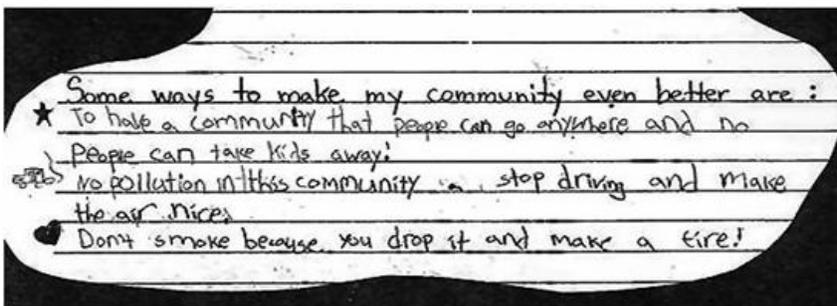 Some ways to make my community even better are :
To have a community that people can go anywhere and no
people can take kids away!
No pollution in this community stop driving and make
the air nice!
Don't smoke because you drop it and make a fire!